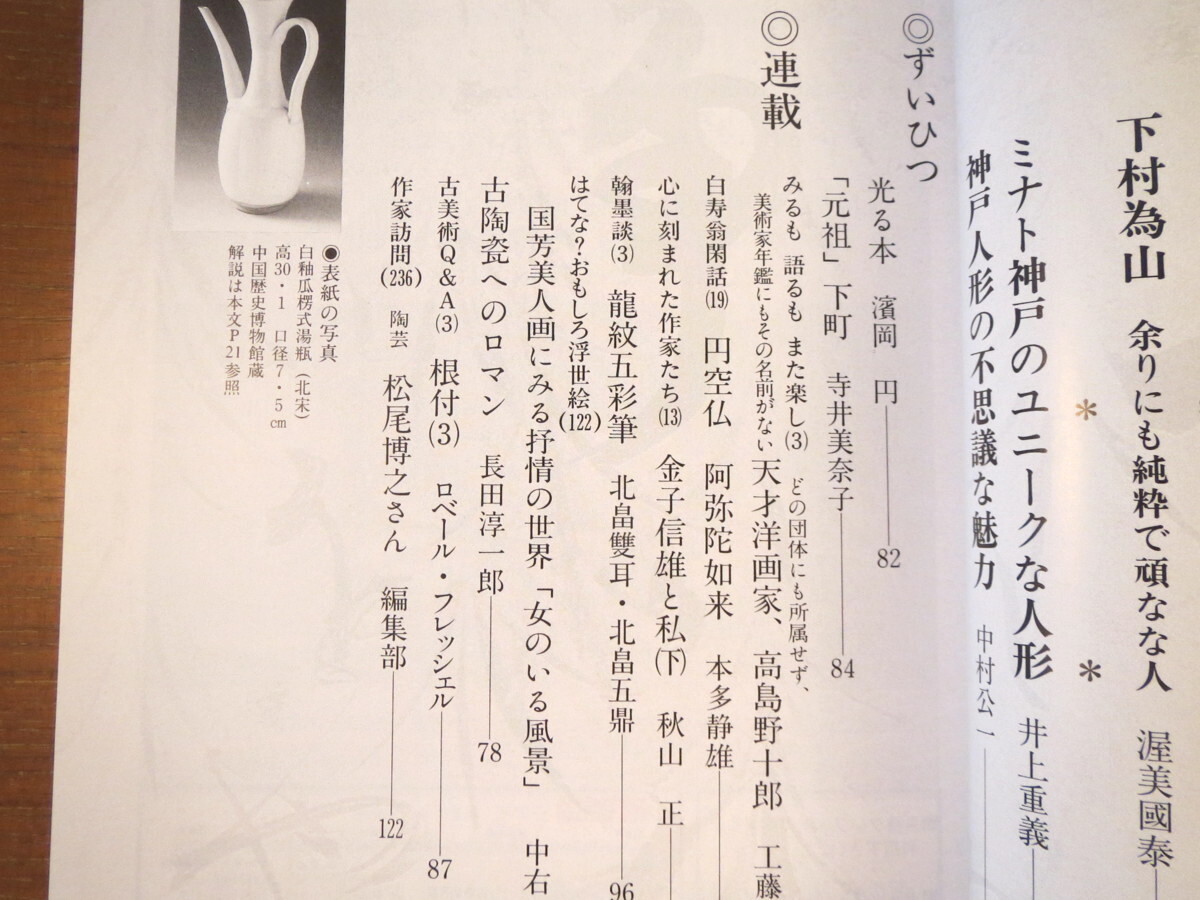 下村為山　余りにも純粋で頑なな人　渥美國泰
＊　＊
ミナト神戸のユニークな人形　井上重義
神戸人形の不思議な魅力　中村公一
◎ずいひつ
光る本　濱岡　円 82
「元祖」下町　寺井美奈子 84
◎連載
みるも 語るも また楽し(3)　どの団体にも所属せず、
美術家年鑑にもその名前がない天才洋画家、高島野十郎　工藤
白寿翁閑話(19)　円空仏　阿弥陀如来　本多静雄
心に刻まれた作家たち(13)　金子信雄と私(下)　秋山　正
翰墨談(3)　龍紋五彩筆　北畠雙耳・北畠五鼎 96
はてな?おもしろ浮世絵(122)
国芳美人画にみる抒情の世界「女のいる風景」　中右
古陶瓷へのロマン　長田淳一郎 78
古美術Q&A(3)　根付(3)　ロベール・フレッシェル 87
作家訪問(236)　陶芸　松尾博之さん　編集部 122
●表紙の写真
白釉瓜楞式湯瓶（北宋）
高30・1　口径7・5cm
中国歴史博物館蔵
解説は本文P21参照